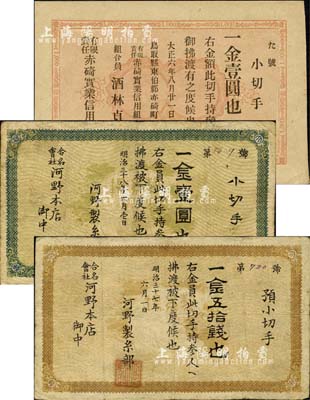 第 號
小切手
一金壹圓也
右金額此切手持參
御拂渡有之度候也
大正六年八月廿一日
鳥取縣東伯郡赤碕町
有限責任 赤碕實業信用組
組合員 酒林貞
有限責任 赤碕實業信用
第 號
小切手
一金壹圓也
右金員此切手持參人へ
拂渡被下度候也
河野製糸
合名會社 河野本店
御中
第 號
預小切手
一金五拾錢也
右金員此切手持參人へ
拂渡被下度候也
明治三十七年
六月一日
河野製糸部
合名會社 河野本店
御中